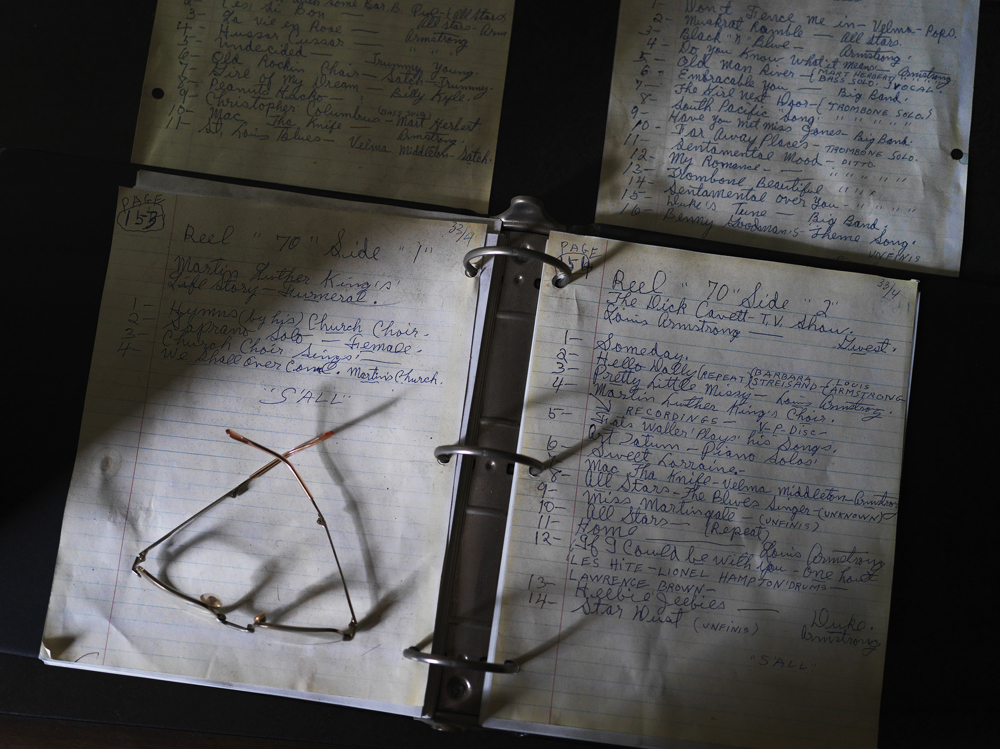 with some Bar.B.
2- C'est Si Bon — All Stars - Arm
3- La vie en Rose — Armstrong
4- Hussar Cussar — " "
5- Undecided — Trummy Young.
6- Old Rockin Chair — Satch - Trummy.
7- Girl of My Dream — Billy Kyle.
8- Peanuts
9- Christopher Columbus — Mort Herbert
10- Mac Tha Knife — Armstrong
11- St. Louis Blues — Velma Middleton - Satch.
1- Don't Fence me in - Velma - Pops.
2- Muskrat Ramble — All Stars.
3- Black 'n Blue — Armstrong.
4- Do You Know What it means - Armstrong
5- Old Man River — (MORT HERBERT) VOCAL
6- Embraceable You — BASS SOLO.
7- The Girl Next Door - Big Band.
8- South Pacific Song (TROMBONE SOLO)
9- Have You Met Miss Jones - " " "
10- Far Away Places - Big Band.
11- Sentamental Mood - TROMBONE SOLO.
12- My Romance — DITTO.
13- Trombone Beautiful " " "
14- Sentamental over You - " " "
15- Duke's Tune — Big Band
16- Benny Goodman's Theme Song.
UNFINIS
PAGE
153
33/4
Reel "70" Side "1"
Martin Luther King's
Life Story — Funneral.
1- Hymns (by his) Church Choir.
2- Soprano Solo — Female.
3- Church Choir Sings'
4- We Shall Over Come. Martin's Church.
"S'ALL"
PAGE
154
33/4
Reel "70" Side "2"
The Dick Cavett - T.V. Show.
Louis Armstrong — Guest.
1- Someday.
2- Hello Dolly (REPEAT) (BARBARA STREISAND) (LOUIS ARMSTRONG
3- Pretty Little Missy - Louis Armstrong
4- Martin Luther King's Choir.
RECORDINGS — V-P-DISC —
5- Fats Waller Plays his Songs.
6- Art Tatum — Piano Solos'
7- Sweet Lorraine.
8- Mac Tha Knife - Velma Middleton - Armstrong
9- All Stars - The Blues Singer - (UNKNOWN)
10- Miss Martingale - (UNFINIS)
11- All Stars — (Repeat)
12- Home — Louis Armstrong
If I Could be With You - One hour
LES HITE - LIONEL HAMPTON DRUMS —
LAWRENCE BROWN —
13- Heebie Jeebies —
14- Star Dust (UNFINIS) Duke.
Armstrong
"S'ALL"